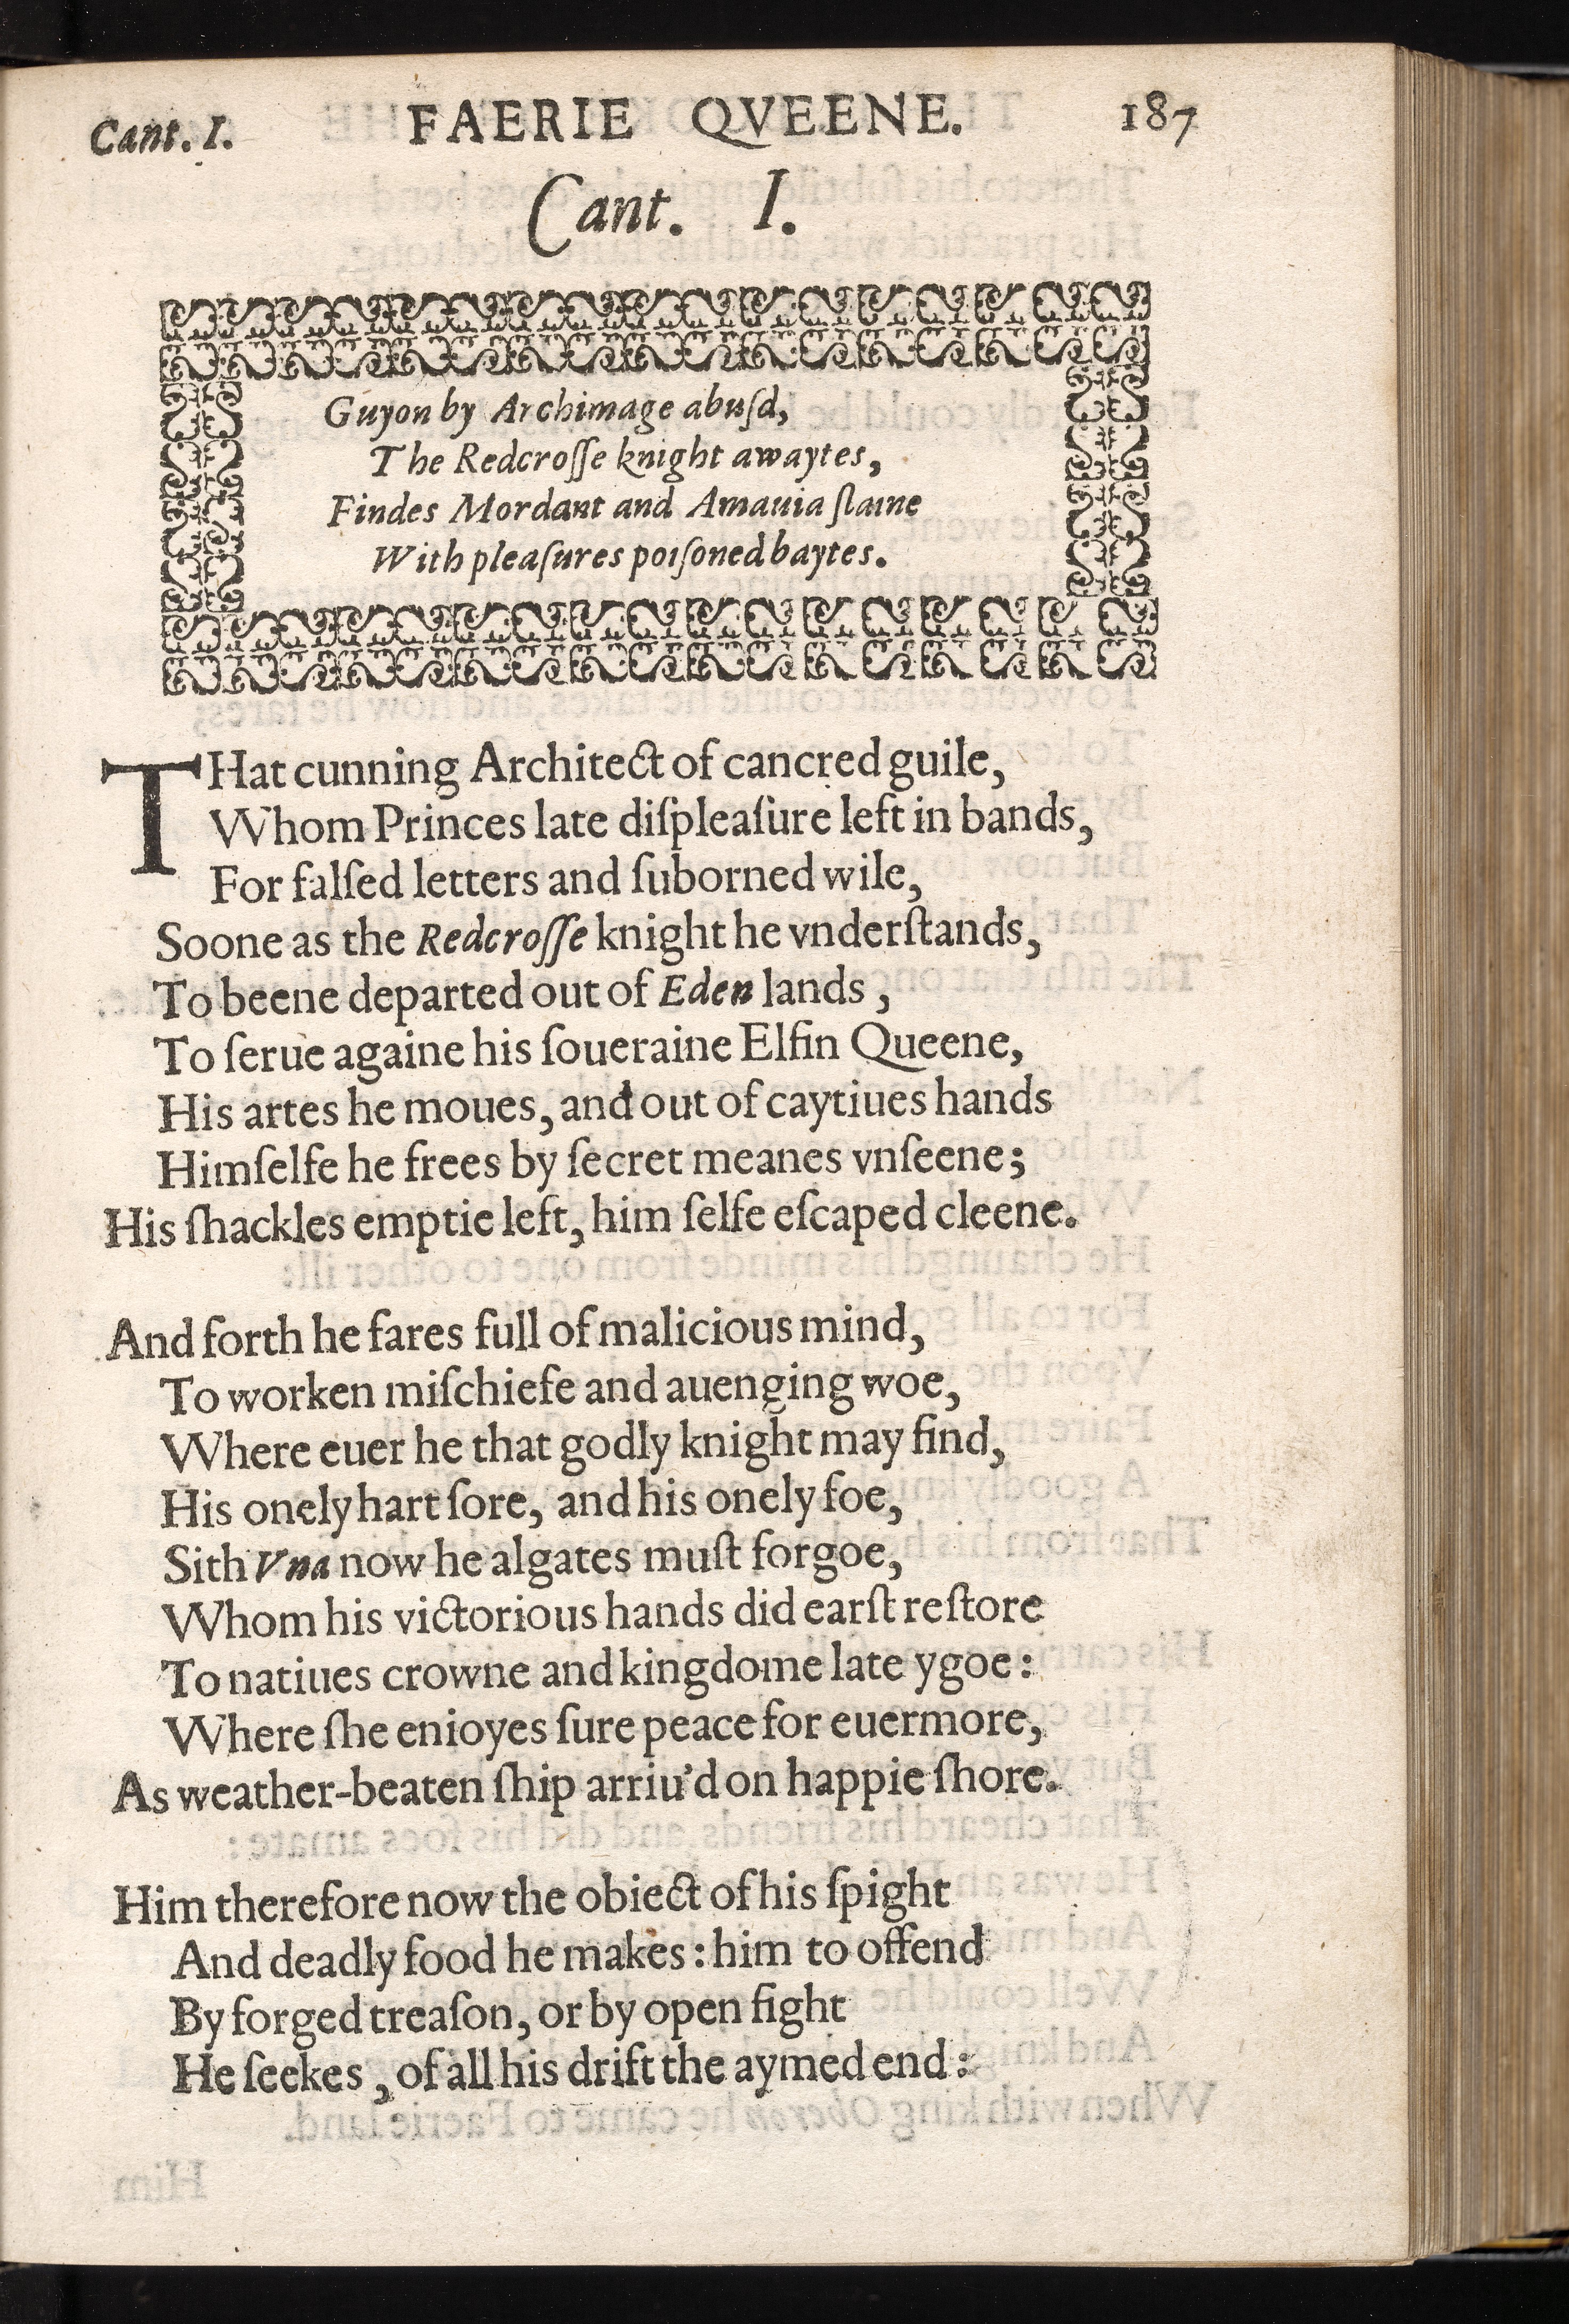 Cant. I. FAERIE QVEENE. 187
Cant. I.
Guyon by Archimage abuſd,
The Redcroſſe knight awaytes,
Findes Mordant and Amauia ſlaine
With pleaſures poiſoned baytes.
THat cunning Architect of cancred guile,
VVhom Princes late diſpleaſure left in bands,
For falſed letters and ſuborned wile,
Soone as the Redcroſſe knight he vnderſtands,
To beene departed out of Eden lands,
To ſerue againe his ſoueraine Elfin Queene,
His artes he moues, and out of caytiues hands
Himſelfe he frees by ſecret meanes vnſeene;
His ſhackles emptie left, him ſelfe eſcaped cleene.
And forth he fares full of malicious mind,
To worken miſchiefe and auenging woe,
Where euer he that godly knight may find,
His onely hart ſore, and his onely foe,
Sith Vna now he algates muſt forgoe,
Whom his victorious hands did earſt reſtore
To natiues crowne and kingdome late ygoe:
Where ſhe enioyes ſure peace for euermore,
As weather-beaten ſhip arriu'd on happie ſhore.
Him therefore now the obiect of his ſpight
And deadly food he makes: him to offend
By forged treaſon, or by open fight
He ſeekes, of all his drift the aymed end: